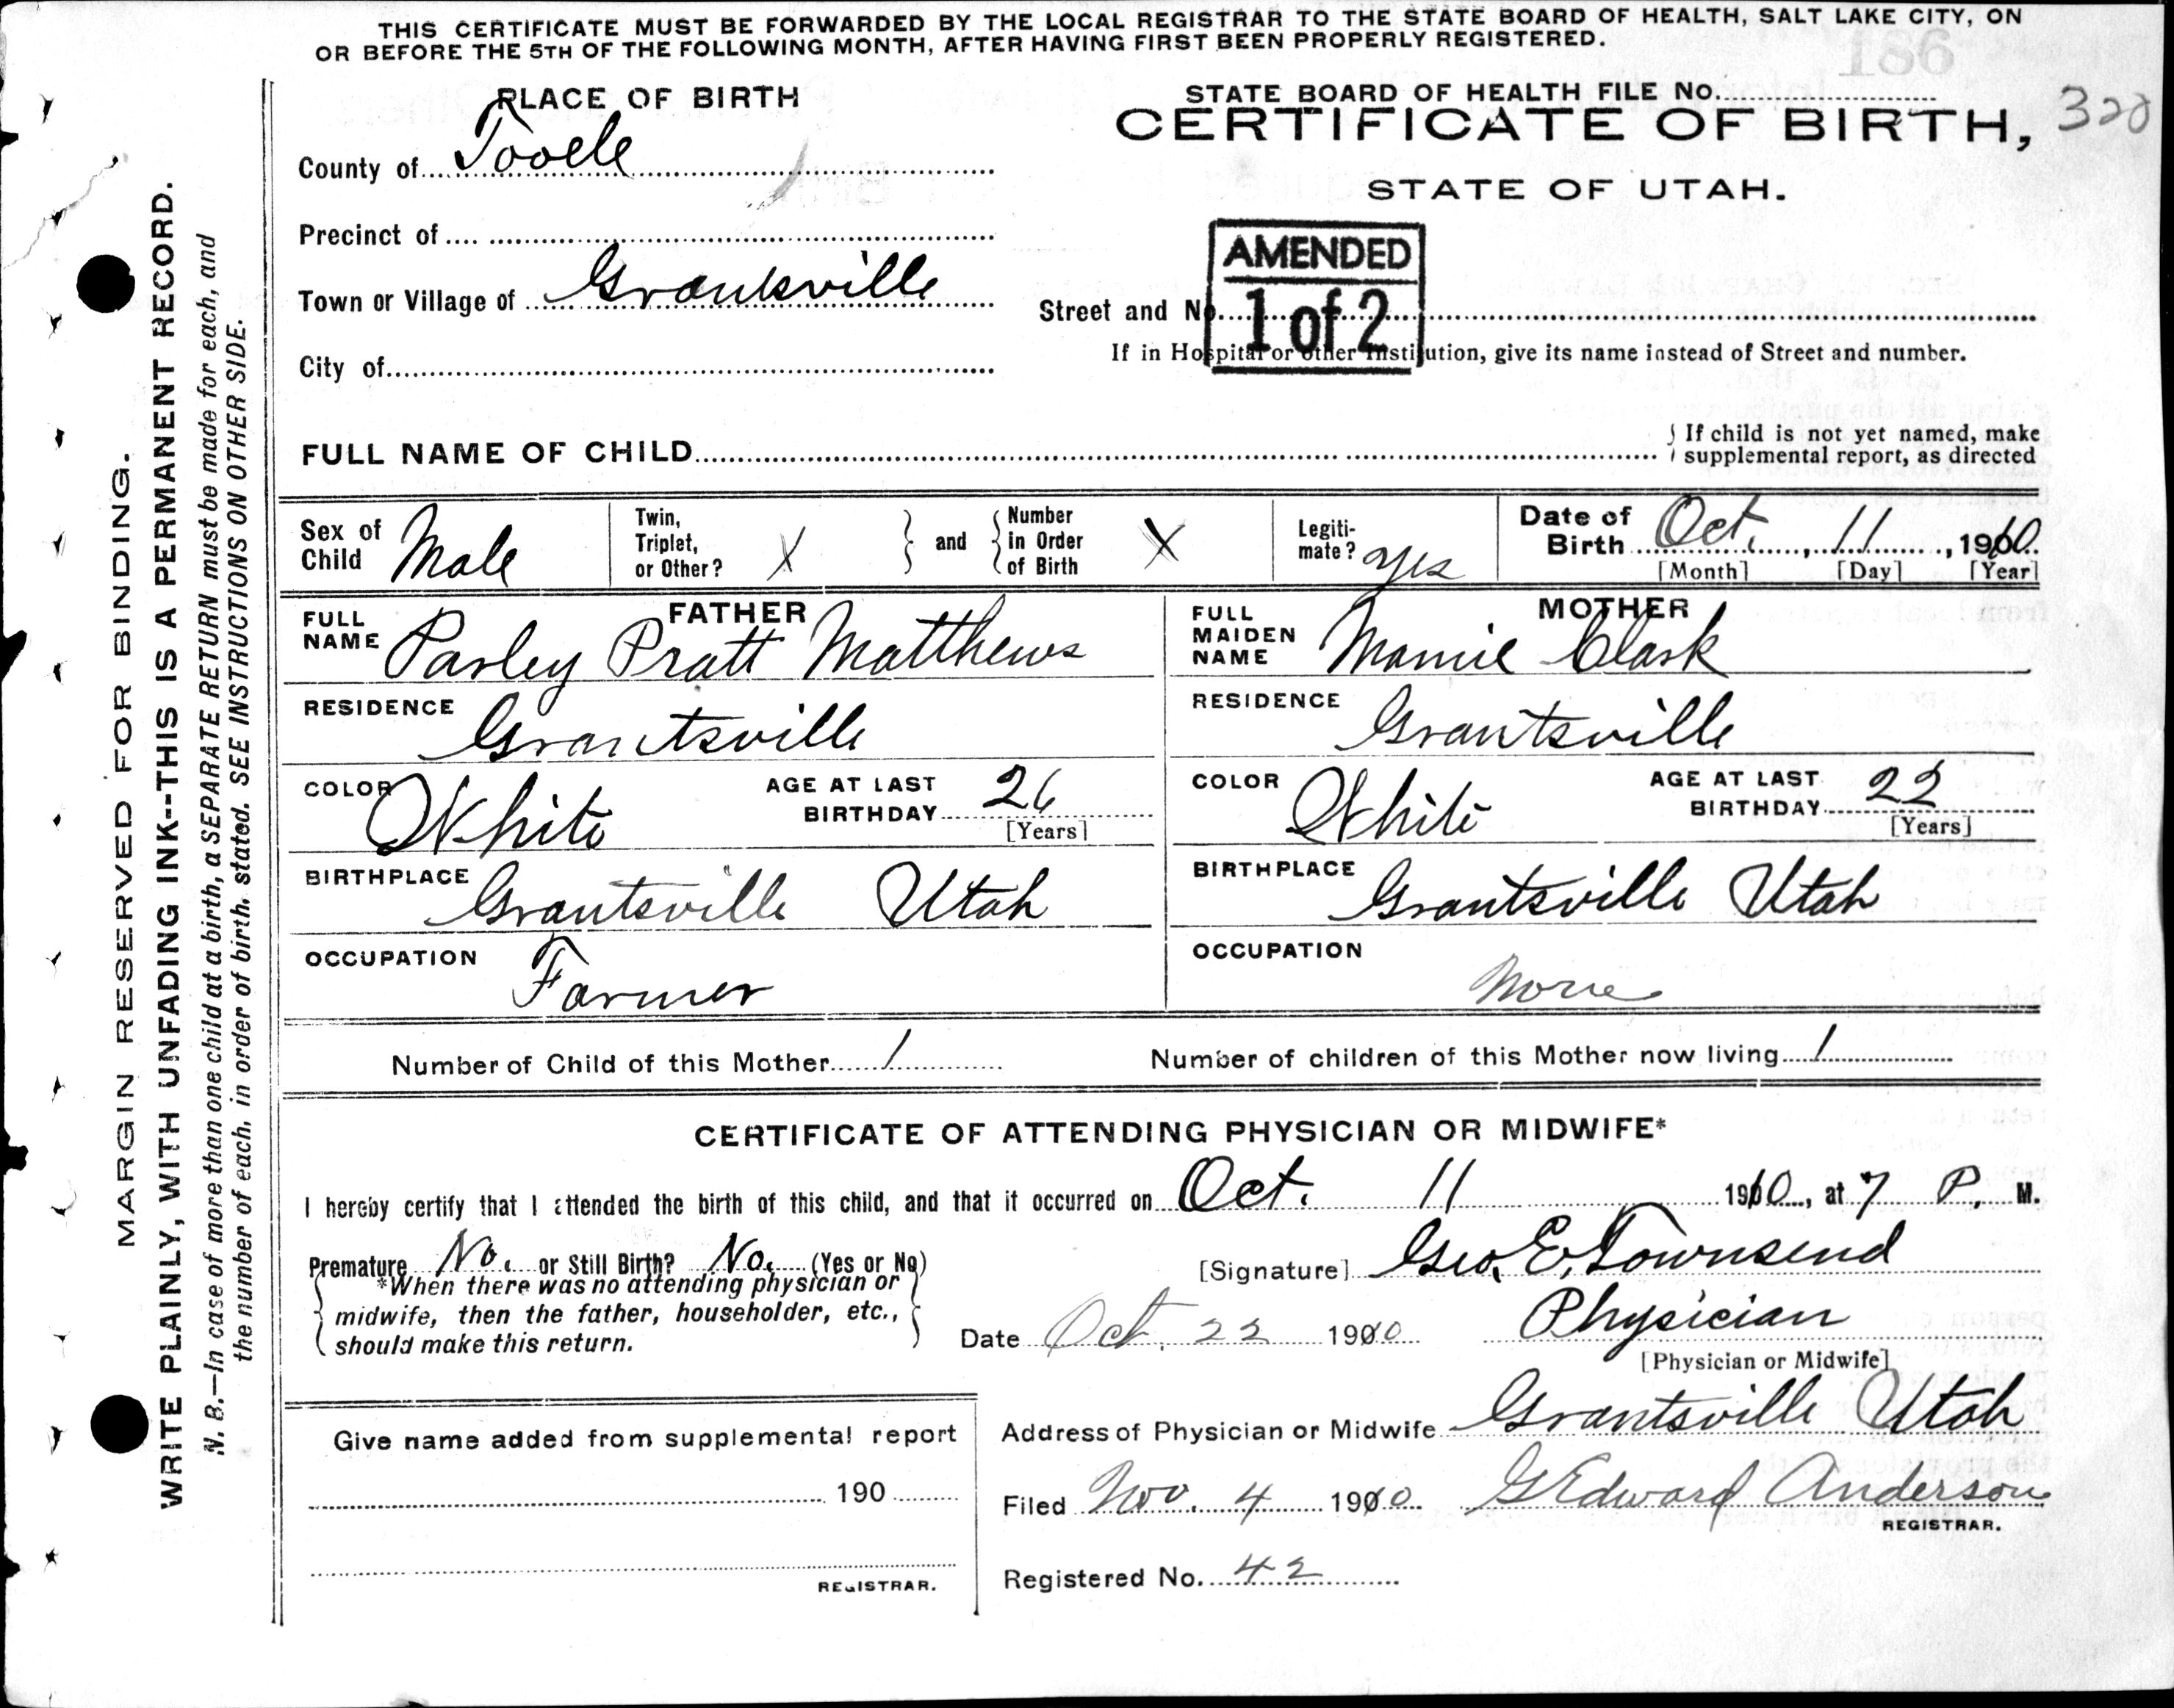 THIS CERTIFICATE MUST BE FORWARDED BY THE LOCAL REGISTRAR TO THE STATE BOARD OF HEALTH, SALT LAKE CITY, ON
OR BEFORE THE 5TH OF THE FOLLOWING MONTH, AFTER HAVING FIRST BEEN PROPERLY REGISTERED.
186
PLACE OF BIRTH
STATE BOARD OF HEALTH FILE No.
CERTIFICATE OF BIRTH, 320
County of Tooele
STATE OF UTAH.
Precinct of
AMENDED
1 of 2
Town or Village of Grantsville
Street and No.
If in Hospital or other Institution, give its name instead of Street and number.
City of
FULL NAME OF CHILD
If child is not yet named, make
supplemental report, as directed
Sex of Child Male
Twin, Triplet, or Other? X
and
Number in Order of Birth X
Legiti-mate? yes
Date of Birth Oct. 11, 1910
[Month] [Day] [Year]
FATHER
FULL NAME Parley Pratt Matthews
MOTHER
FULL MAIDEN NAME Mamie Clark
RESIDENCE Grantsville
RESIDENCE Grantsville
COLOR White AGE AT LAST BIRTHDAY 26 [Years]
COLOR White AGE AT LAST BIRTHDAY 22 [Years]
BIRTHPLACE Grantsville Utah
BIRTHPLACE Grantsville Utah
OCCUPATION Farmer
OCCUPATION None
Number of Child of this Mother 1 Number of children of this Mother now living 1
CERTIFICATE OF ATTENDING PHYSICIAN OR MIDWIFE*
I hereby certify that I attended the birth of this child, and that it occurred on Oct. 11 1910, at 7 P. M.
Premature No. or Still Birth? No. (Yes or No)
*When there was no attending physician or
midwife, then the father, householder, etc.,
should make this return.
[Signature] Geo. E. Townsend
Date Oct. 22 1910 Physician
[Physician or Midwife]
Address of Physician or Midwife Grantsville Utah
Give name added from supplemental report
190
REGISTRAR.
Filed Nov. 4 1910 G Edward Anderson
REGISTRAR.
Registered No. 42
MARGIN RESERVED FOR BINDING.
WRITE PLAINLY, WITH UNFADING INK--THIS IS A PERMANENT RECORD.
N. B.—In case of more than one child at a birth, a SEPARATE RETURN must be made for each, and
the number of each, in order of birth, stated. SEE INSTRUCTIONS ON OTHER SIDE.